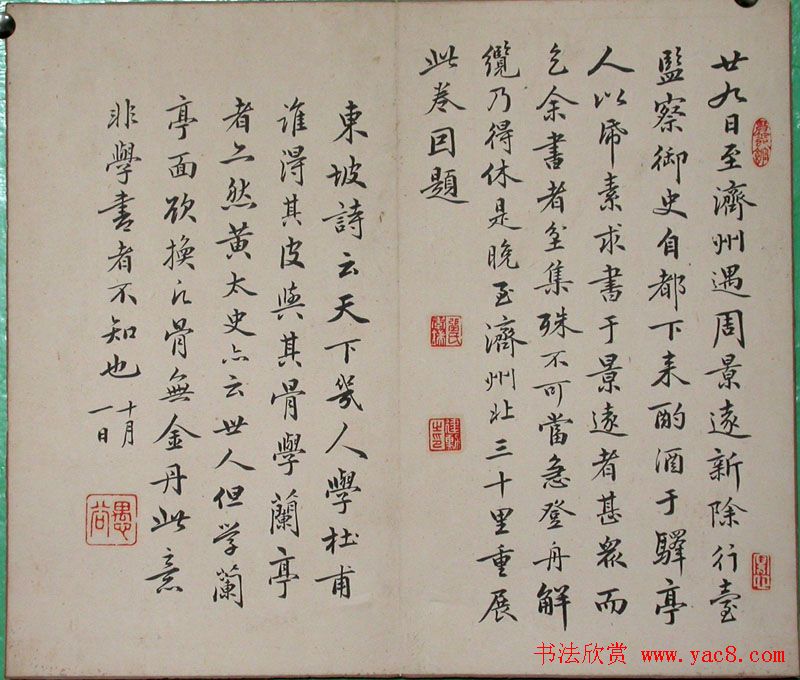 廿九日至濟州遇周景遠新除行臺
監察御史自都下来酌酒于驛亭
人以帋素求書于景遠者甚衆而
乞余書者坌集殊不可當急登舟解
纜乃得休是晚至濟州北三十里重展
此卷因題
東坡詩云天下幾人學杜甫
誰得其皮與其骨學蘭亭
者亦然黄太史亦云世人但学蘭
亭面欲換凡骨無金丹此意
非學書者不知也
十月
一日
愚谷
书法欣赏 www.yac8.com